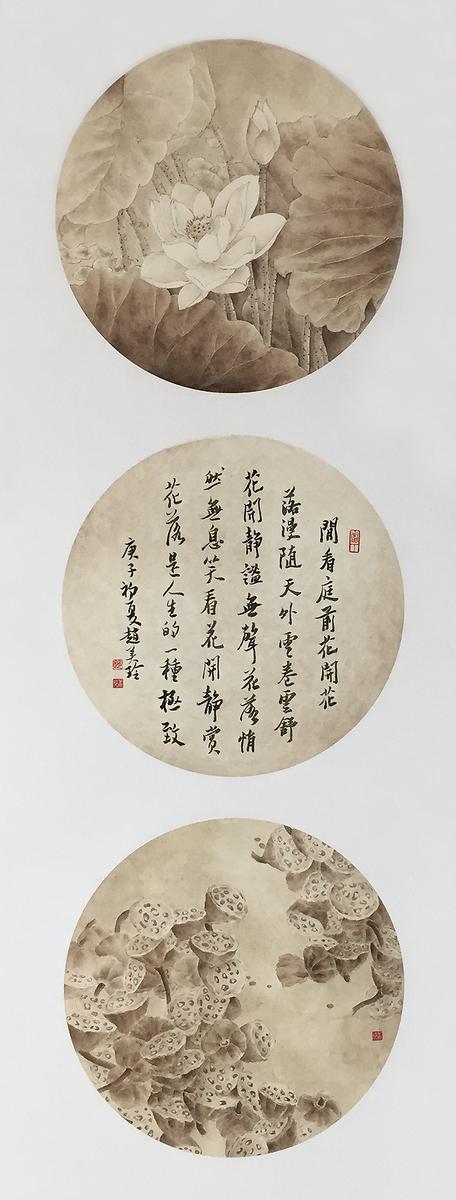 閒看庭前花開花
落漫隨天外雲卷雲舒
花開靜謐無聲花落悄
然無息笑看花開靜賞
花落是人生的一種極致
庚子初夏趙